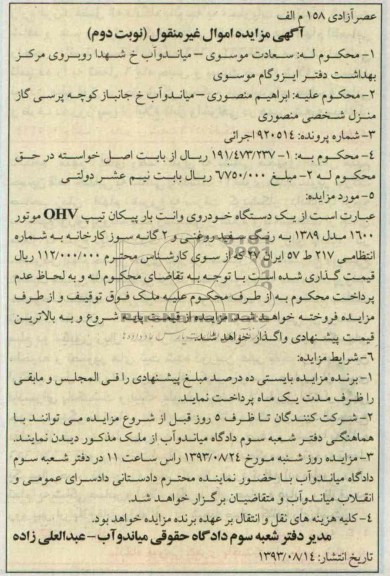 عصرآزادی ۱۵۸ م الف
آگهی مزایده اموال غیرمنقول (نوبت دوم)
۱- محکوم له: سعادت موسوی – میاندوآب خ شهدا روبروی مرکز
بهداشت دفتر ایزوگام موسوی
۲- محکوم علیه: ابراهیم منصوری – میاندوآب خ جانباز کوچه پرسی گاز
منزل شخصی منصوری
۳- شماره پرونده: ۹۲۰۵۱۴ اجرائی
۴- محکوم به: ۱- ۱۹۱/۴۷۳/۲۳۷ ریال از بابت اصل خواسته در حق
محکوم له ۲- مبلغ ۶۷۵۰/۰۰۰ ریال بابت نیم عشر دولتی
۵- مورد مزایده:
عبارت است از یک دستگاه خودروی وانت بار پیکان تیپ OHV موتور
۱۶۰۰ مدل ۱۳۸۹ به رنگ سفید روغنی و ۲ گانه سوز کارخانه به شماره
انتظامی ۲۱۷ ط ۵۷ ایران ۲۷ که از سوی کارشناس محترم ۱۱۲/۰۰۰/۰۰۰ ریال
قیمت گذاری شده است با توجه به تقاضای محکوم له و به لحاظ عدم
پرداخت محکوم به از طرف محکوم علیه ملک فوق توقیف و از طرف
مزایده فروخته خواهد شد مزایده از قیمت پایه شروع و به بالاترین
قیمت پیشنهادی واگذار خواهد شد.
۶- شرایط مزایده:
۱- برنده مزایده بایستی ده درصد مبلغ پیشنهادی را فی المجلس و مابقی
را ظرف مدت یک ماه پرداخت نماید.
۲- شرکت کنندگان تا ظرف ۵ روز قبل از شروع مزایده می توانند با
هماهنگی دفتر شعبه سوم دادگاه میاندوآب از ملک مذکور دیدن نمایند.
۳- مزایده روز شنبه مورخ ۱۳۹۳/۰۸/۲۴ راس ساعت ۱۱ در دفتر شعبه سوم
دادگاه میاندوآب با حضور نماینده محترم دادستانی دادسرای عمومی و
انقلاب میاندوآب و متقاضیان برگزار خواهد شد.
۴- کلیه هزینه های نقل و انتقال بر عهده برنده مزایده خواهد بود.
مدیر دفتر شعبه سوم دادگاه حقوقی میاندوآب – عبدالعلی زاده
تاریخ انتشار: ۱۳۹۳/۰۸/۱۴